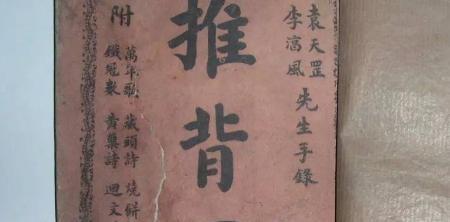 袁天罡
李淳風
先生手錄
推背
附
萬年歌 藏頭詩 燒餅
鐵冠數 黃巢詩 迴文